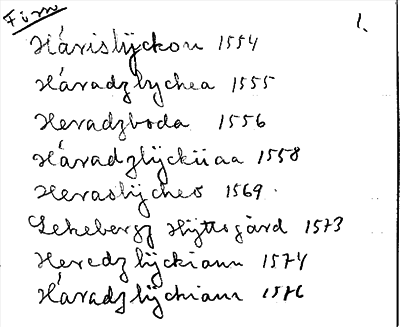 Firn
1.
Hárislÿckou 1554
Háradzbychea 1555
Heradzboda 1556
Háradzlÿckiiaa 1558
Heraslÿches 1569
Lekebergz Hÿttogård 1573
Heredzlÿckiann 1574
Háradzlÿchiann 1576